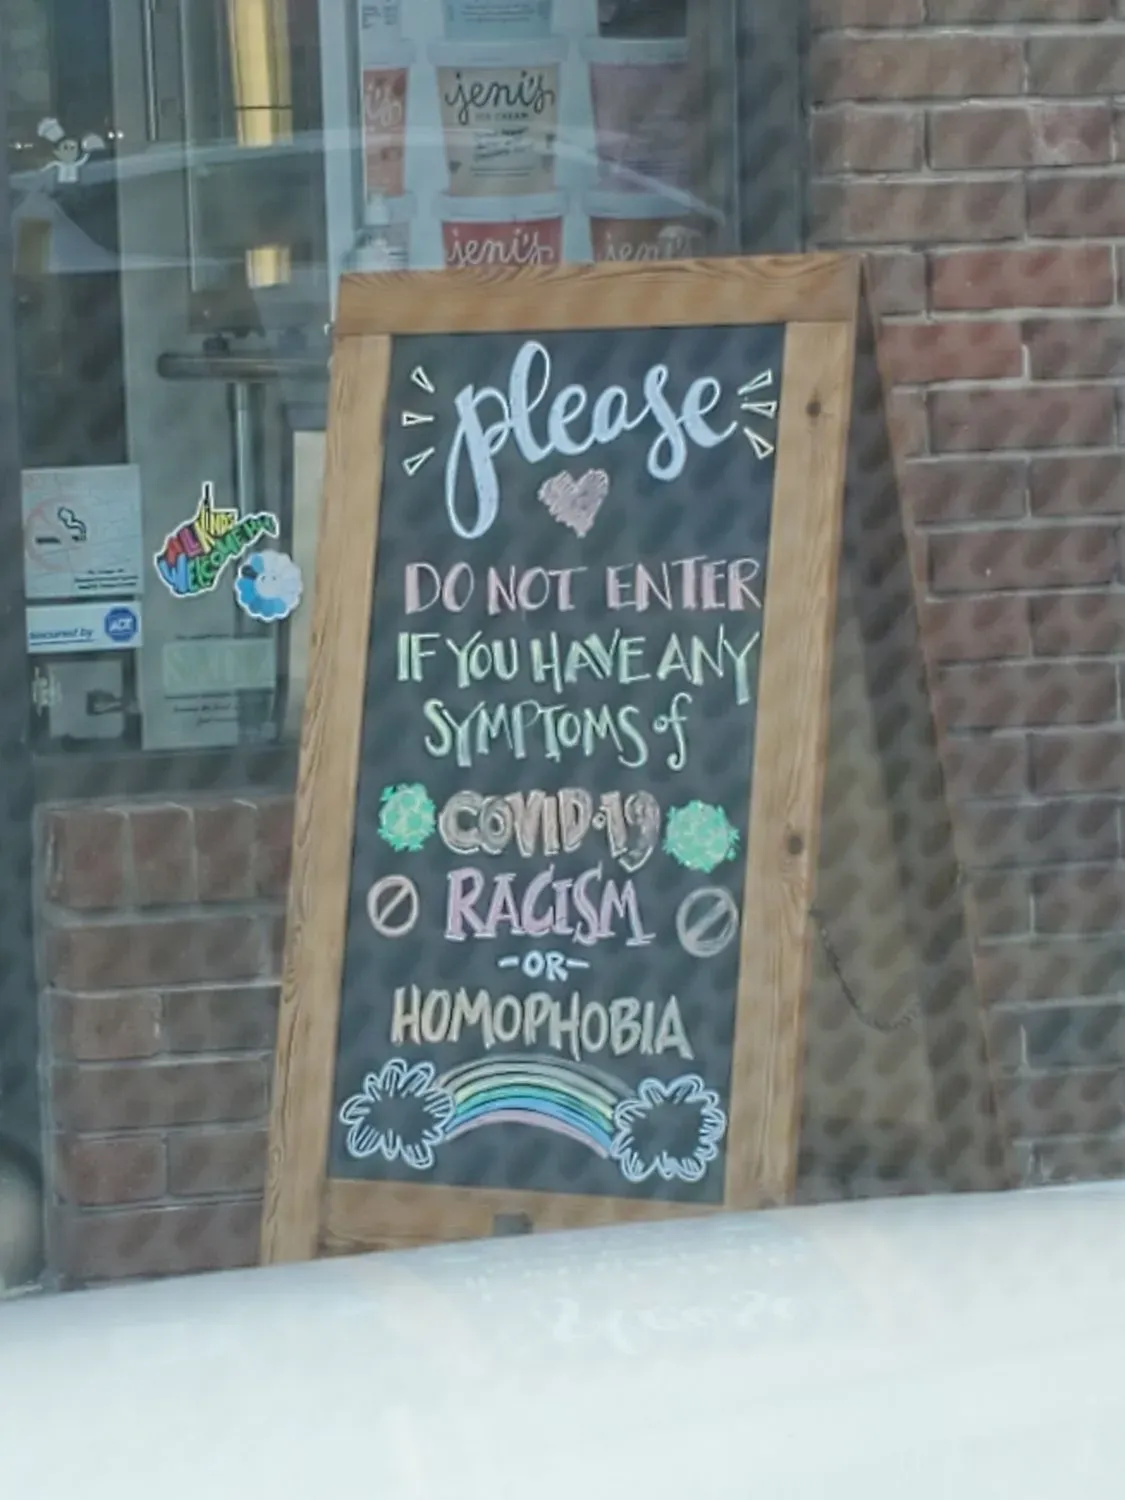 jeni's
ICE CREAM
jeni's
jeni's
please
DO NOT ENTER
IF YOU HAVE ANY
SYMPTOMS of
COVID-19
RACISM
-OR-
HOMOPHOBIA
ALL KINDS
WELCOME
secured by
ADT